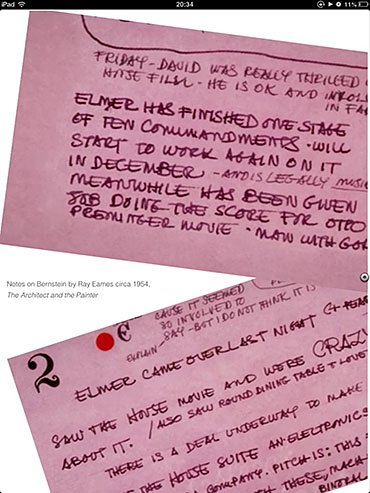 iPad 20:34 11%
FRIDAY - DAVID WAS REALLY THRILLED
HOUSE FILM - HE IS OK AND INVOL
IN FA
ELMER HAS FINISHED ONE STAGE
OF TEN COMMANDMENTS - WILL
START TO WORK AGAIN ON IT
IN DECEMBER - AND IS LEGALLY MUSIC
MEANWHILE HAS BEEN GIVEN
JOB DOING THE SCORE FOR OTTO
PREMINGER MOVIE - MAN WITH GOL
Notes on Bernstein by Ray Eames circa 1954,
The Architect and the Painter
CAUSE IT SEEMED
SO INVOLVED TO
EXPLAIN SAY - BUT I DO NOT THINK IT IS
2 €
ELMER CAME OVER LAST NIGHT
SAW THE HOUSE MOVIE AND WERE CRAZY
ABOUT IT. / ALSO SAW ROUND DINING TABLE + LOVE
THERE IS A DEAL UNDERWAY TO MAKE
THE HOUSE SUITE AN ELECTRONICS
COMPANY. PITCH IS: THIS
THESE, MACH
BINORAL